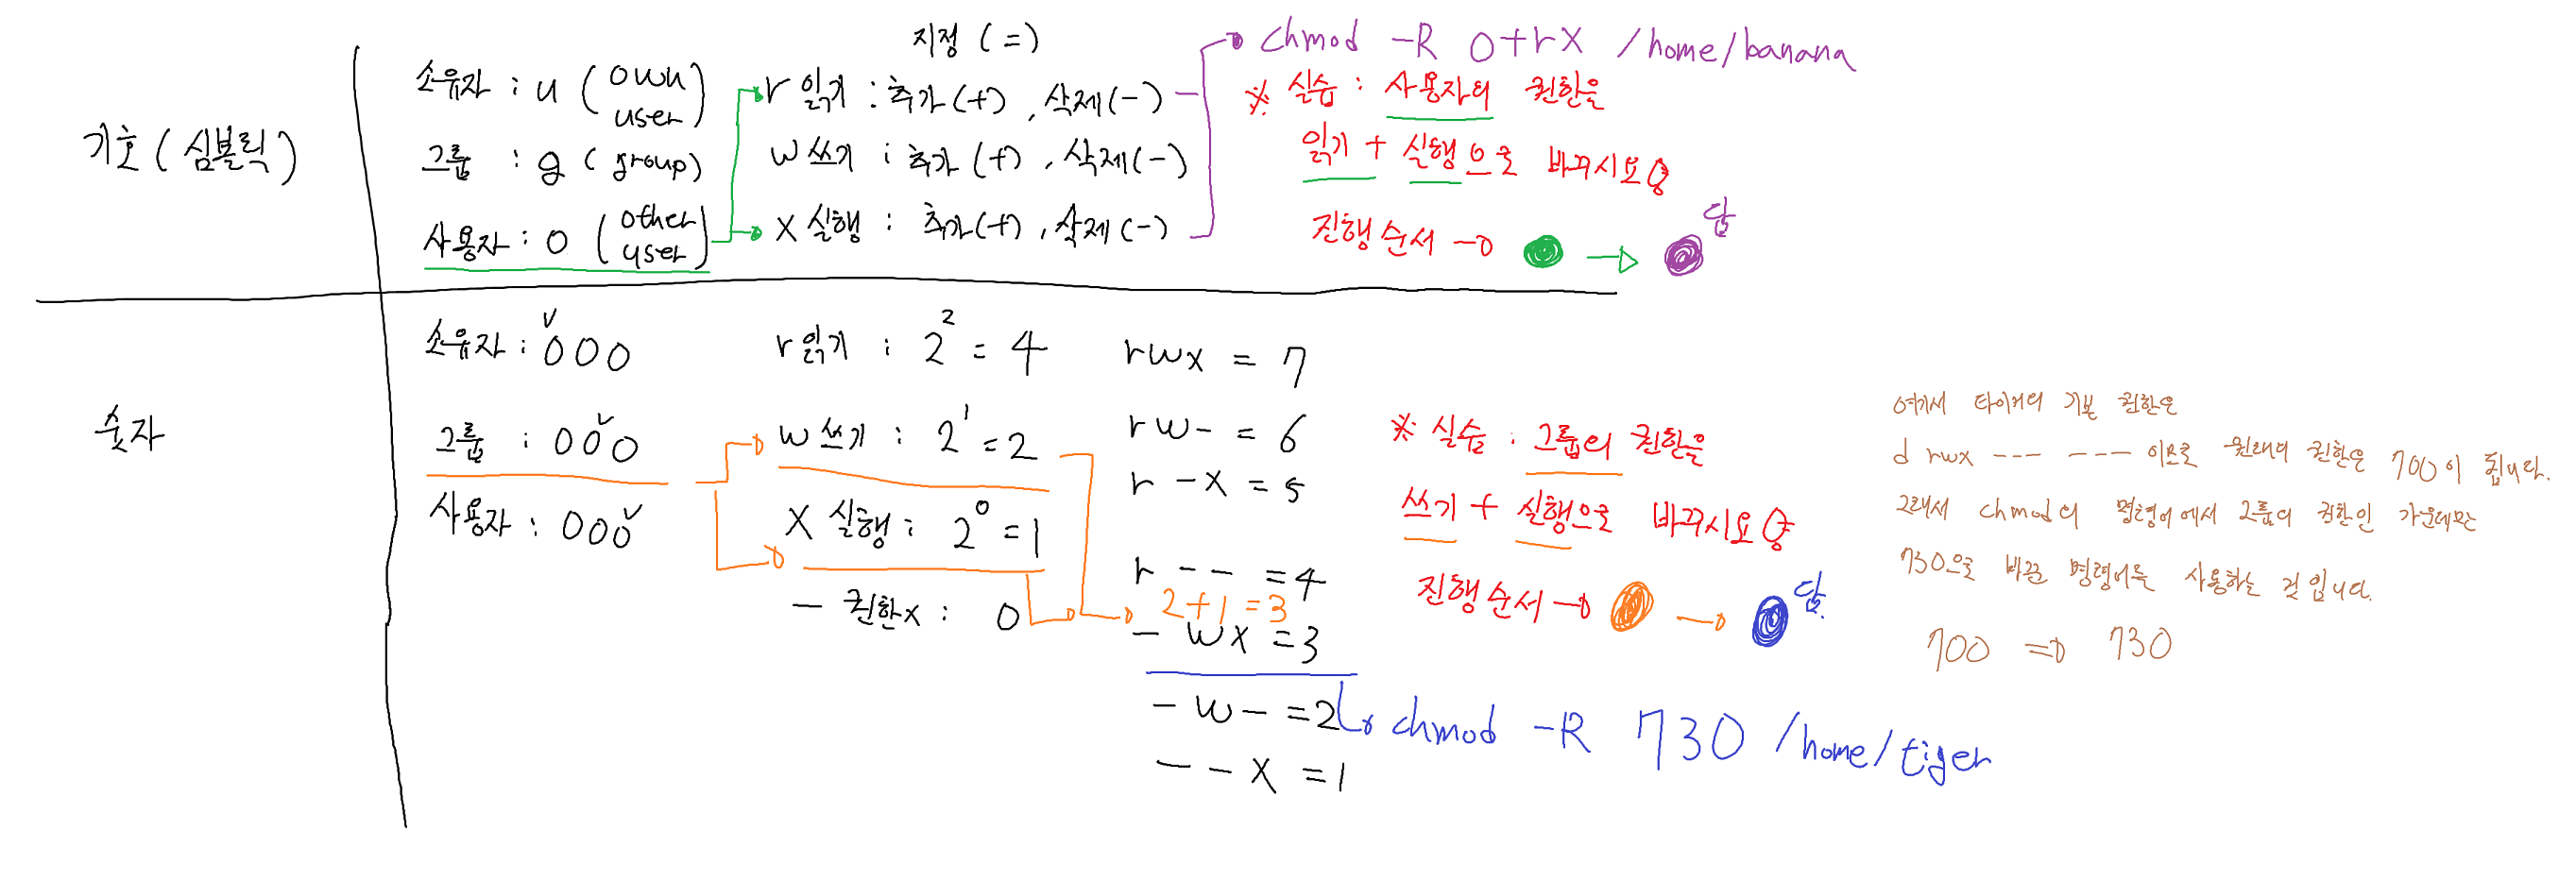 기호(심볼릭)
소유자 : u (own user)
그룹 : g (group)
사용자 : o (other user)
지정 (=)
r 읽기 : 추가(+), 삭제(-)
w 쓰기 : 추가(+), 삭제(-)
X 실행 : 추가(+), 삭제(-)
chmod -R o+rx /home/banana
※ 실습 : 사용자의 권한을
읽기 + 실행으로 바꾸시요용
진행순서 →
답
숫자
소유자 : 000
그룹 : 000
사용자 : 000
r 읽기 : 2² = 4
w 쓰기 : 2¹ = 2
X 실행 : 2⁰ = 1
- 권한x : 0
rwx = 7
rw- = 6
r-x = 5
r-- = 4
2+1=3
-wx = 3
-w- = 2
--x = 1
chmod -R 730 /home/tiger
※ 실습 : 그룹의 권한을
쓰기 + 실행으로 바꾸시요용
진행순서 →
답.
여기서 타이거의 기본 권한은
d rwx --- --- 이므로 원래의 권한은 700이 됩니다.
그래서 chmod의 명령어에서 그룹의 권한인 가운데만
730으로 바꾼 명령어를 사용하는 것입니다.
700 ⇒ 730